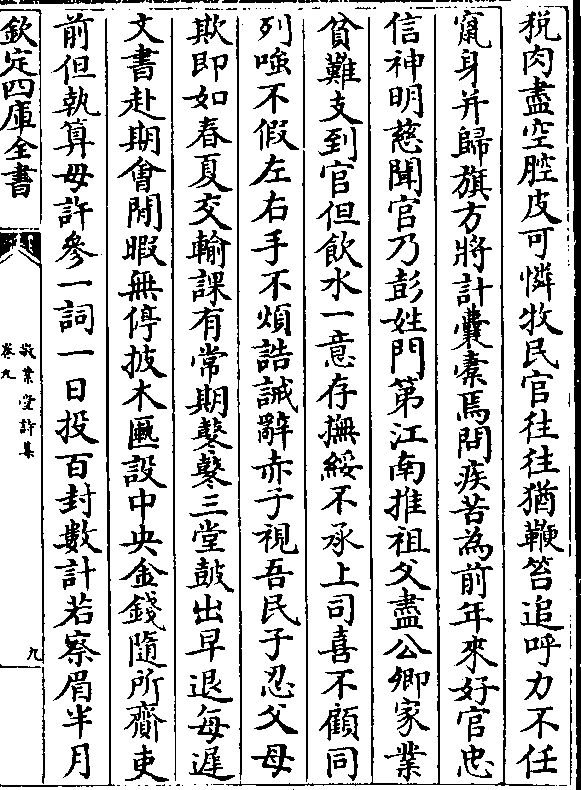 稅肉盡空腔皮可憐牧民官往往猶鞭笞追呼力不任
竄身并歸旗方將計囊橐焉問疾苦為前年來好官忠
信神明慈聞官乃彭姓門第江南推祖父盡公卿家業
貧難支到官但飲水一意存撫綏不承上司喜不顧同
列嗤不假左右手不煩誥誡辭赤子視吾民子忍父母
欺即如春夏交輸課有常期鼕鼕三堂鼓出早退每遲
文書赴期會閒暇無停披木匭設中央金錢隨所齎吏
前但執算毋許參一詞一日投百封數計若察眉半月
欽定四庫全書
敬業堂詩集
卷九
九